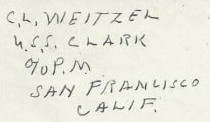 C.L. WEITZEL
U.S.S. CLARK
℅ P.M
SAN FRANCISCO
CALIF.